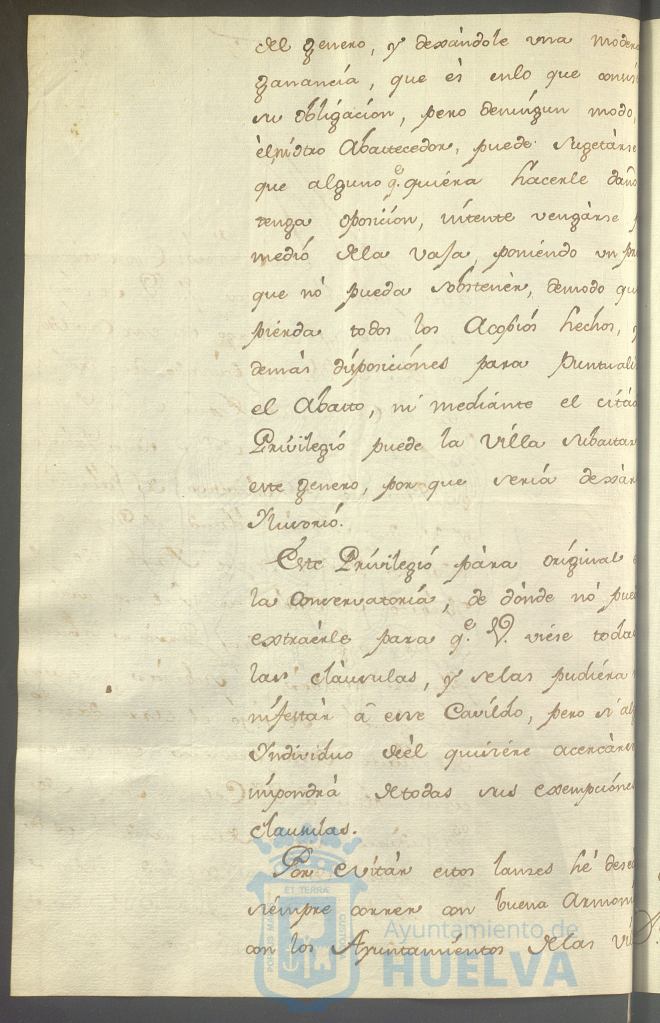 del genero, y dexàndole una moder
ganancia, que és enlo que consi
su obligación, pero deningun modo,
èl nuestro Abastecedor, puede sugetàrse
que alguno q.e quiéra hacerle daño
tenga oposición, inténte vengàrse p
medió dela vaja, poniéndo un pre
que nó pueda sobstenèr, demodo que
piérda todos los Acopiós hechos, y
demàs disposiciónes para puntuali
el Abasto, ni mediánte el citád
Privilegió puede la Villa subastar
este genero, por que seriá dexàr
Ylusorió.
Este Privilegió pàra original e
la Conservatoriá, de dónde nó pue
extraérle para q.e V. viése todas
las clàusulas, y selas pudiéra
nifestàr â este Cavildo, pero si alg
Yndividuo deèl quisiére acercàrse
impondrà detodas sus exempciónes
clausulas.
Por evitàr estos lanzes hé dese
siémpre correr con buena Armoni
con los Ayuntamiéntos delas Vil
PORTUS MARIS ET TERRAE CUSTODIA
Ayuntamiento de
HUELVA